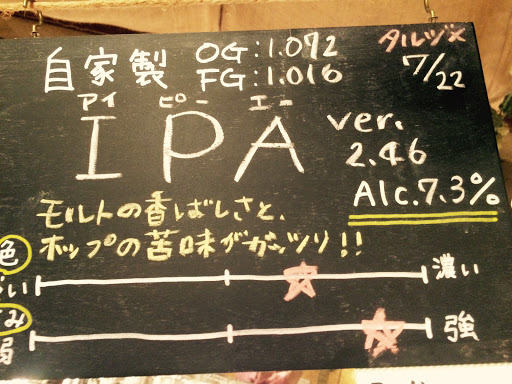 自家製 OG:1.072 タルヅメ
FG:1.016 7/22
アイ ピー エー
IPA ver.
2.46
Alc.7.3%
モルトの香ばしさと、
ホップの苦味がガッツリ!!
色
い 濃い
み
弱 強